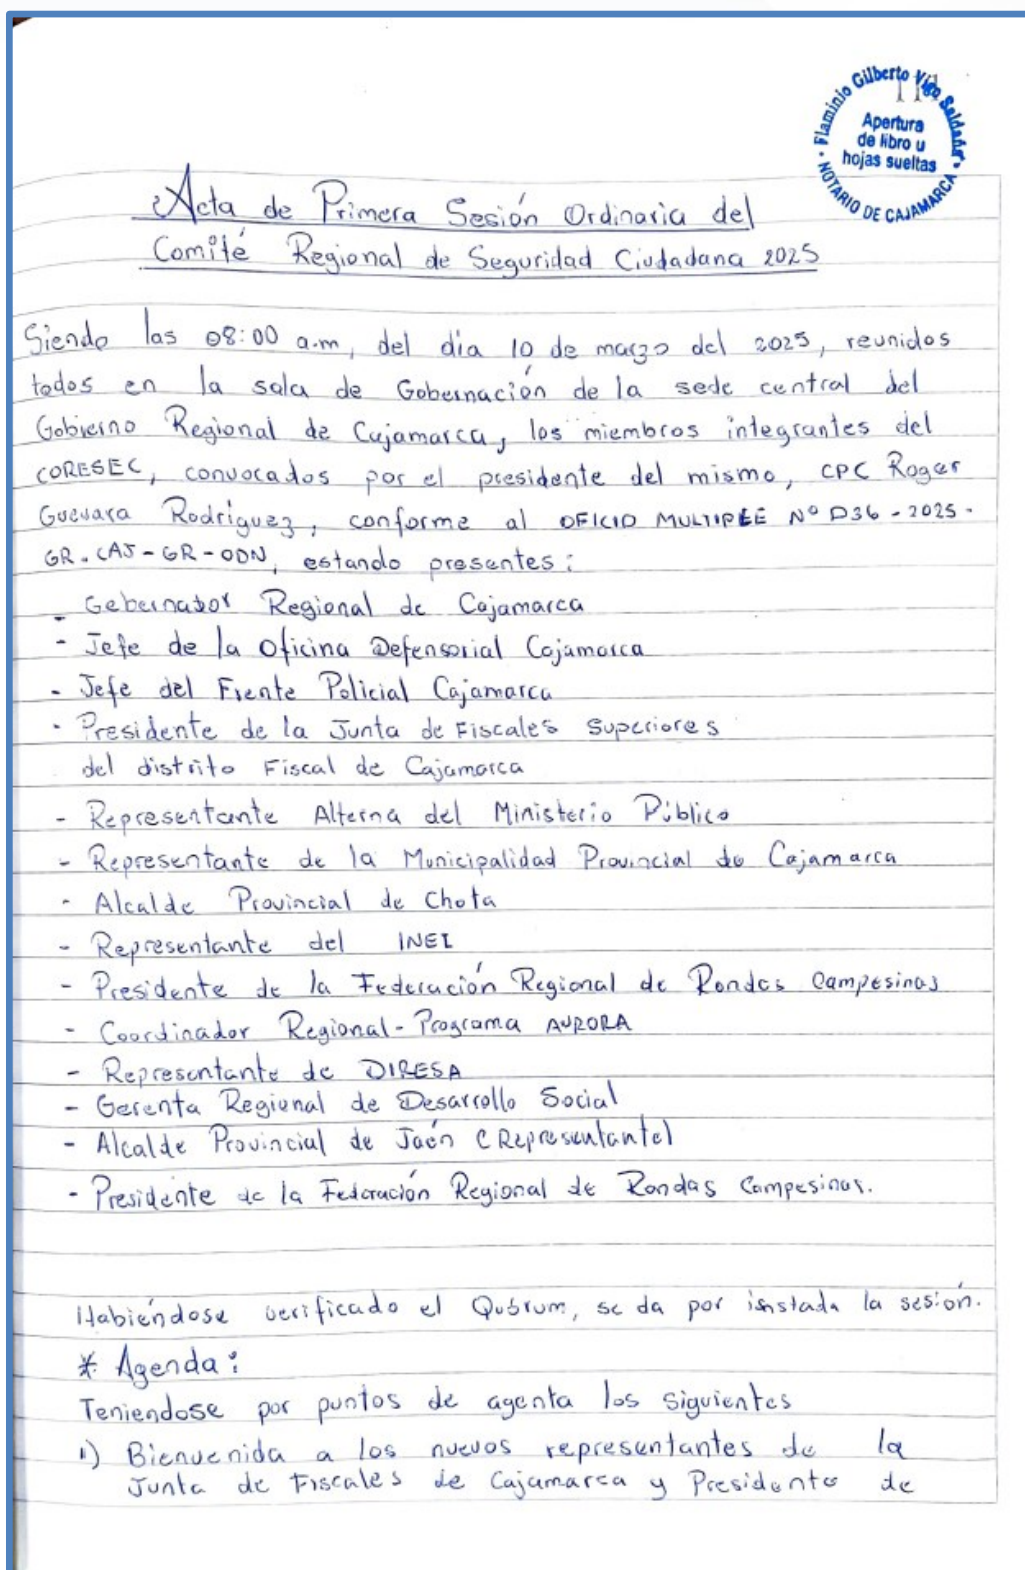 Flaminio Gilberto Vigo Saldaña
Apertura
de libro u
hojas sueltas
NOTARIO DE CAJAMARCA
Acta de Primera Sesión Ordinaria del
Comité Regional de Seguridad Ciudadana 2025
Siendo las 08:00 a.m, del día 10 de marzo del 2025, reunidos
todos en la sala de Gobernación de la sede central del
Gobierno Regional de Cajamarca, los miembros integrantes del
CORESEC, convocados por el presidente del mismo, CPC Roger
Guevara Rodríguez, conforme al OFICIO MULTIPLE Nº D36-2025-
GR.CAJ-GR-ODN, estando presentes:
- Gobernador Regional de Cajamarca
- Jefe de la Oficina Defensorial Cajamarca
- Jefe del Frente Policial Cajamarca
- Presidente de la Junta de Fiscales Superiores
del distrito Fiscal de Cajamarca
- Representante Alterna del Ministerio Público
- Representante de la Municipalidad Provincial de Cajamarca
- Alcalde Provincial de Chota
- Representante del INEI
- Presidente de la Federación Regional de Rondas Campesinas
- Coordinador Regional-Programa AURORA
- Representante de DIRESA
- Gerenta Regional de Desarrollo Social
- Alcalde Provincial de Jaén (Representante)
- Presidente de la Federación Regional de Rondas Campesinas.
Habiéndose verificado el Quórum, se da por instada la sesión.
* Agenda:
Teniendose por puntos de agenta los siguientes
1) Bienvenida a los nuevos representantes de la
Junta de Fiscales de Cajamarca y Presidente de